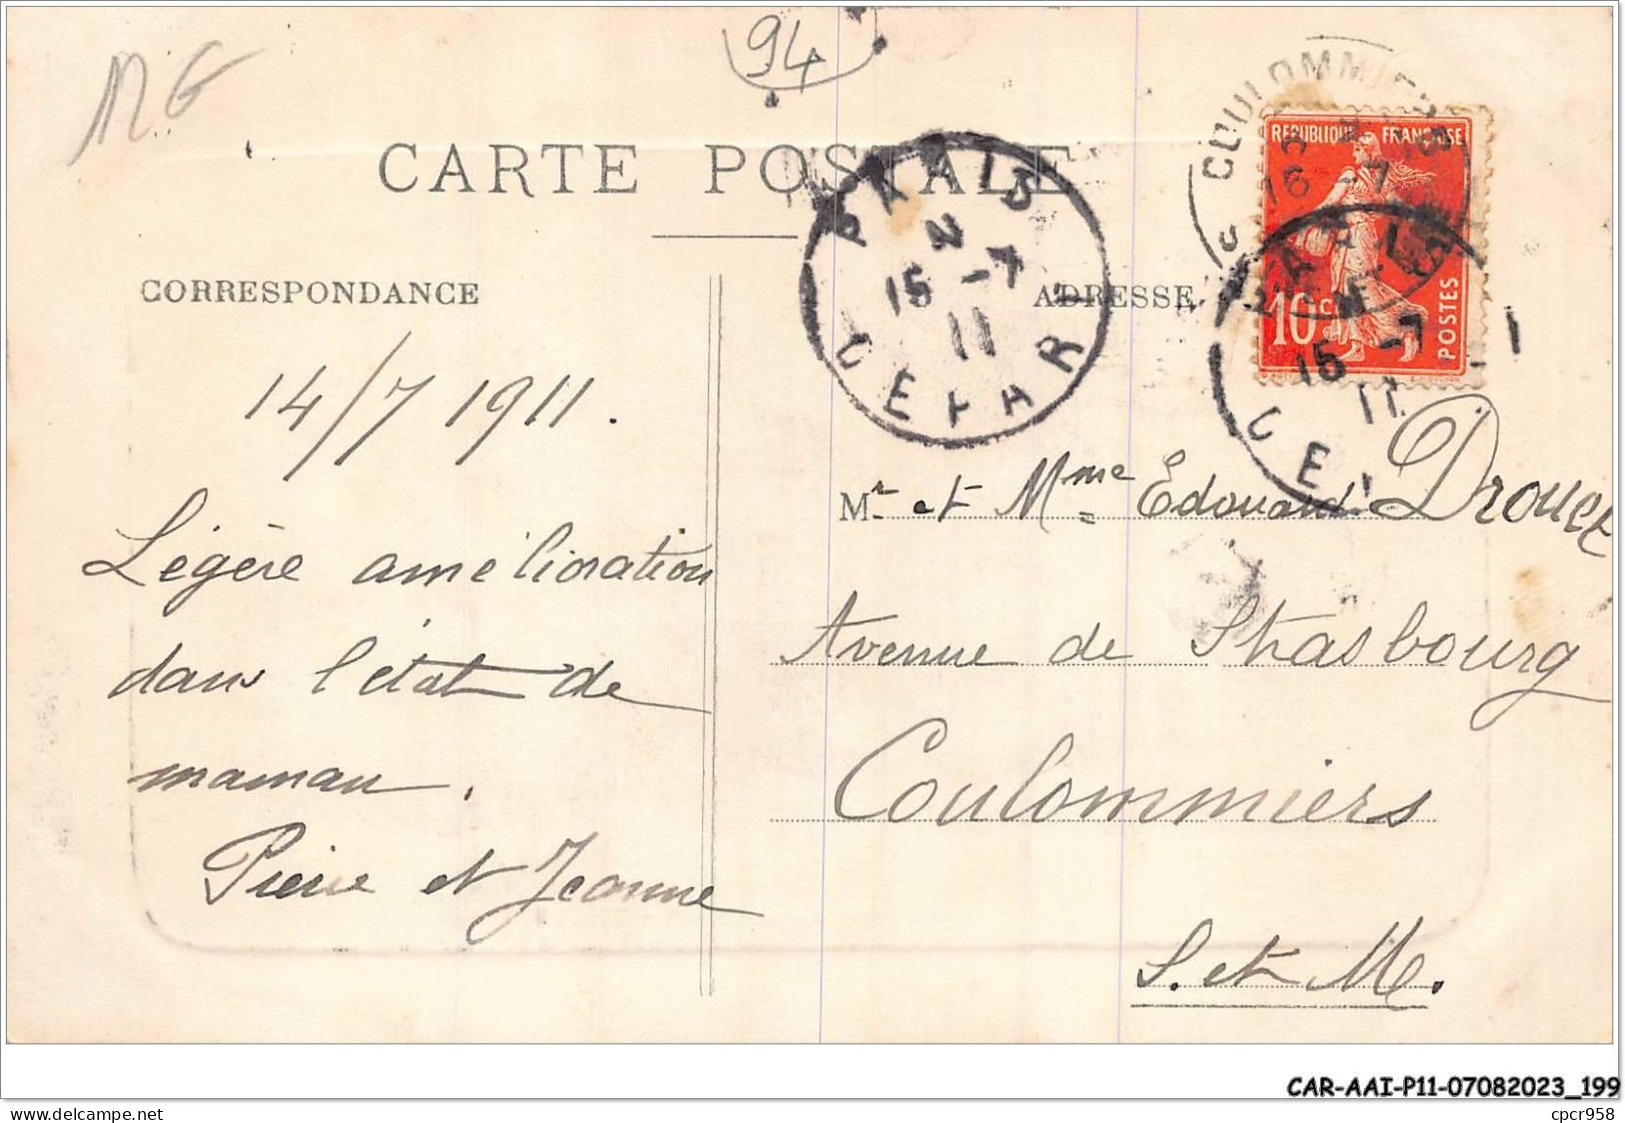 MG
94
CARTE POSTALE
CORRESPONDANCE
14/7 1911.
Légère amélioration
dans l'état de
maman.
Pierre et Jeanne
PARIS
N
15 -7
11
DEPAR
ADRESSE
COULOMMIERS
16 -7
REPUBLIQUE FRANÇAISE
10c
POSTES
PARIS
15 -7
11
DE
Mr et Mme Edouard Drouet
Avenue de Strasbourg
Coulommiers
S. et M.
CAR-AAI-P11-07082023_199
www.delcampe.net
cpcr958